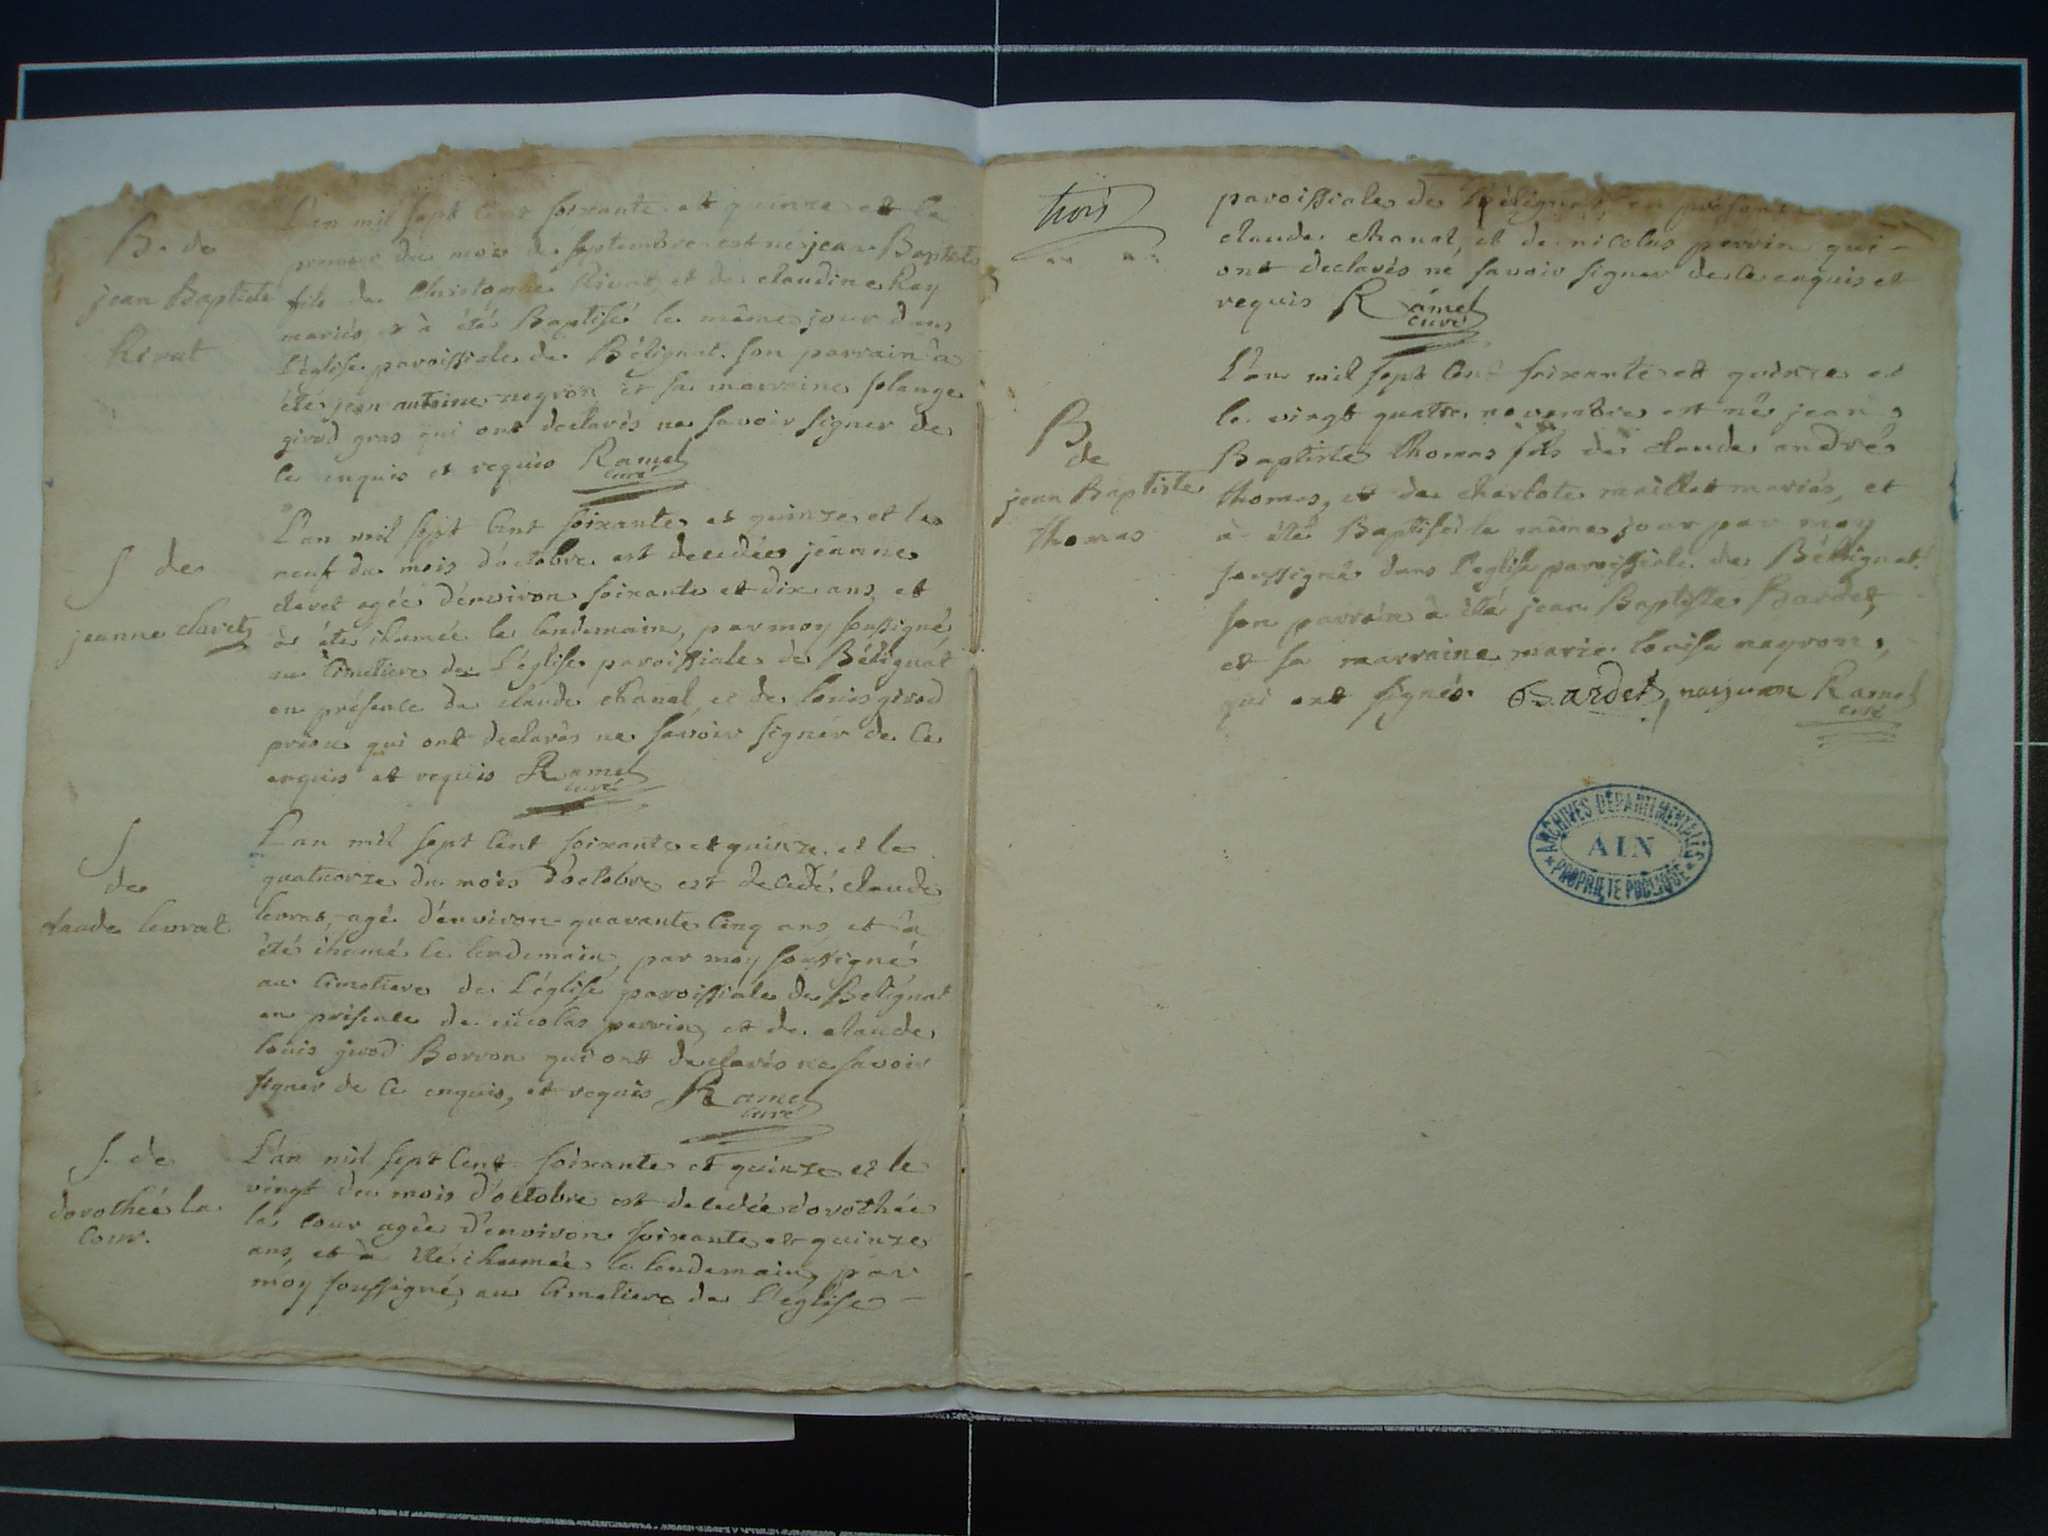 B. de
jean Baptiste
Rivat
L'an mil sept cent soixante et quinze et le
premier du mois de septembre est né jean Baptiste
fils de Christophe Rivat, et de claudine Ray
mariés et à étés Baptisé le même jour dans
l'église paroissiale de Bélignat. son parrain à
étés jean antoine neyron et sa marraine solange
girod gras qui ont declarés ne savoir signer de
ce enquis et requis Ramel
curé
S de
jeanne claret
L'an mil sept cent soixante et quinze et le
neuf du mois d'octobre est decedée jeanne
claret agée d'environ soixante et dix ans, et
à éte ihumée le lendemain, par moy soussigné,
au cimetiere de L'église paroissiale de Bélignat
en présence de claude chanal, et de louis girod
prieu qui ont declarés ne savoir signér de ce
enquis et requis Ramel
curé
S
de
claude levrat
L'an mil sept cent soixante et quinze et le
quatuorze du mois d'octobre est decedé claude
levrat agé d'environ quarante cinq ans et à
été ihumé le lendemain, par moy soussigné
au cimetiere de L'église paroissiale de Belignat
en présence de nicolas perrin, et de claude
louis girod Borron qui ont declarés ne savoir
signer de ce enquis, et requis Ramel
curé
S. de
dorothée la
cour.
L'an mil sept cent soixante et quinze et le
vingt du mois d'octobre est decedée dorothée
la cour agée d'environ soixante et quinze
ans, et à été ihumée le lendemain, par
moy soussigné, au cimetiere de l'eglise
trois
paroissiale de Bélignat, en présence
claude chanal, et de nicolas perrin qui
ont declarés né savoir signer de ce enquis et
requis Ramel
curé
B
de
jean Baptiste
thomas
L'an mil sept cent soixante et quinze et
le vingt quatre novembre est né jean
Baptiste thomas fils de claude andré
thomas, et de charlote maillet mariés, et
à été Baptisé le même jour par moy
soussigné dans l'eglise paroissiale de Béllignat.
son parrain à été jean Baptiste Bardet,
et sa marraine marie louise neyron,
qui ont signés. Bardet, Ramel
curé
ARCHIVES DÉPARTEMENTALES
AIN
* PROPRIÉTÉ PUBLIQUE *